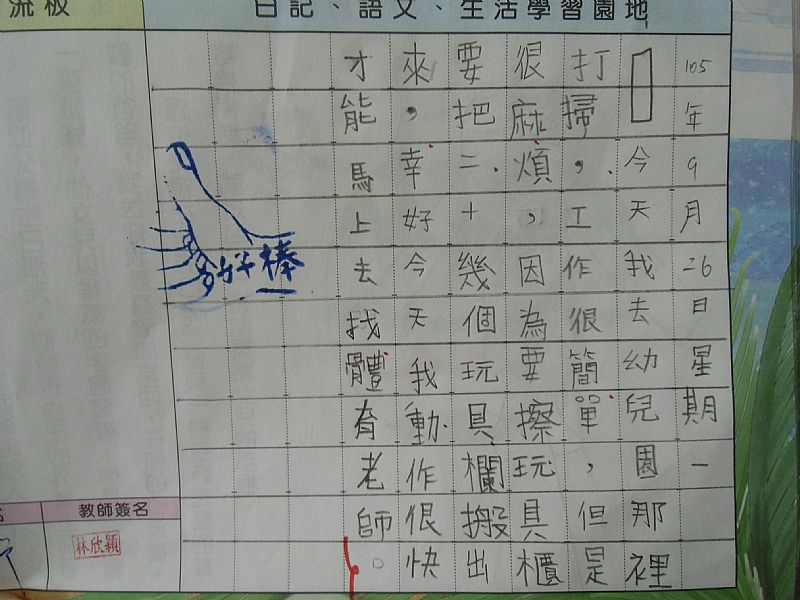 日記、語文、生活學習園地
流板
105年9月26日星期一
今天我去幼兒園那裡
打掃，工作很簡單，但是
很麻煩，因為要擦玩具櫃
要把二十幾個玩具欄搬出
來，幸好今天我動作很快
才能馬上去找體育老師。
好棒
教師簽名
林欣穎